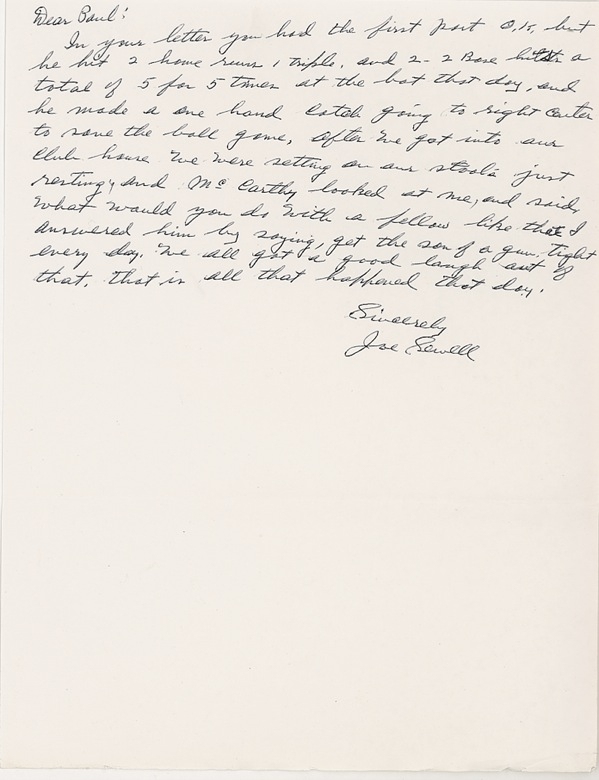 Dear Paul:
In your letter you had the first part O,K, but
he hit 2 home runs 1 triple, and 2-2 Base hits a
total of 5 for 5 times at the bat that day, and
he made a one hand catch going to right center
to save the ball game, after we got into our
club house We were setting on our stools just
resting, and McCarthy looked at me, and said,
What would you do with a fellow like that I
answered him by saying, get the son of a gun, tight
every day. We all got a good laugh out of
that, that is all that happened that day.
Sincerely
Joe Sewell